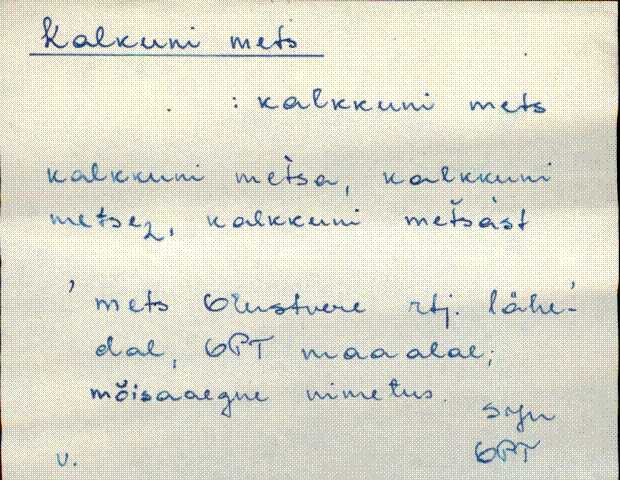 Kalkuni mets
: kalkkuni mets
kalkkuni metsa, kalkkuni
metsez, kalkkuni metsäst
' mets Olustvere rtj. lähe-
dal, OPT maa alal;
mõisaaegne nimetus.
syn
v. OPT